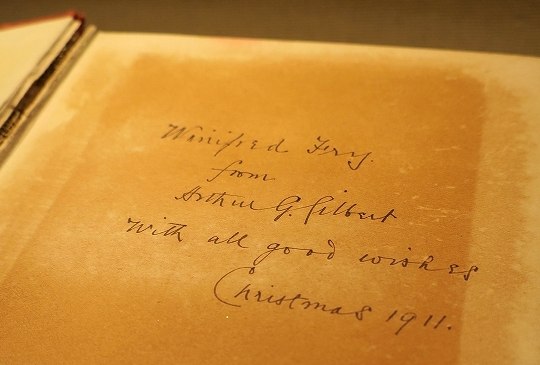 Winifred Fry.
from
Arthur G. Gilbert
With all good wishes
Christmas 1911.